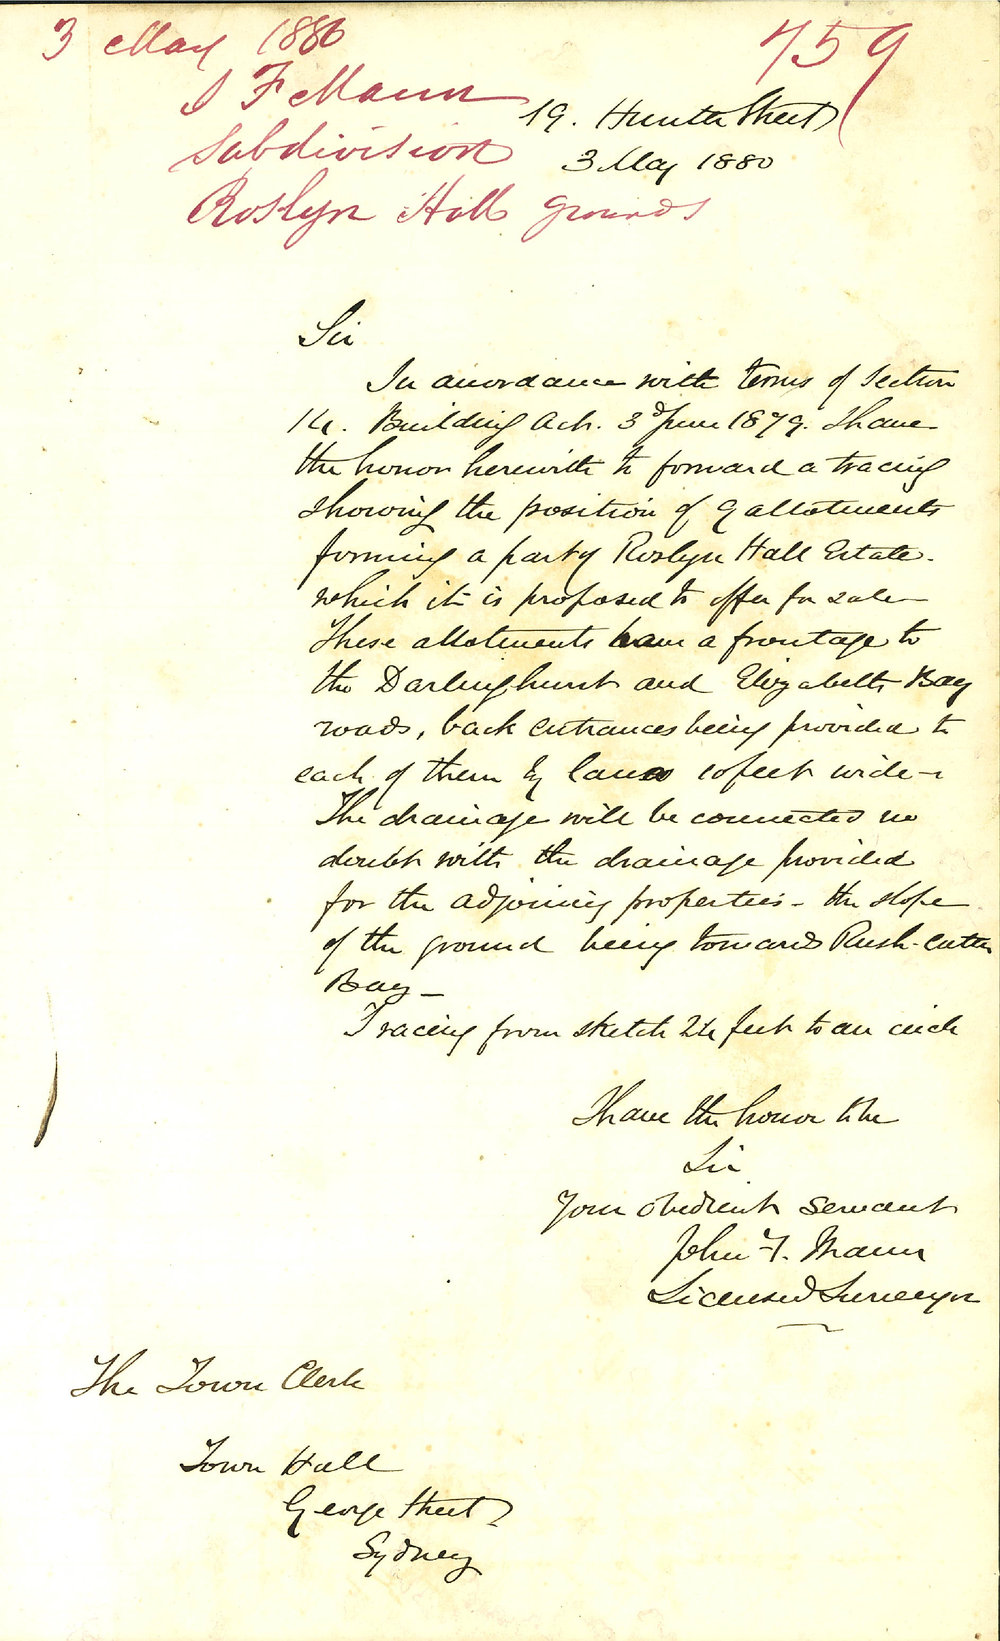 3 May 1880
759
J F Mann
Subdivision
Roslyn Hall grounds
19. Hunter Street
3 May 1880
Sir
In accordance with terms of Section
14. Building Act. 3d June 1879. I have
the honor herewith to forward a tracing
showing the position of 9 allotments
forming a part of Roslyn Hall Estate.
which it is proposed to offer for sale
These allotments have a frontage to
the Darlinghurst and Elizabeth Bay
roads, back entrances being provided to
each of them by lanes 10 feet wide -
The drainage will be connected no
doubt with the drainage provided
for the adjoining properties - the slope
of the ground being towards Rush-cutter
Bay -
Tracing from sketch 24 feet to an inch
I have the honor to be
Sir
Your obedient servant
John F. Mann
Licensed Surveyor
The Town Clerk
Town Hall
George Street
Sydney